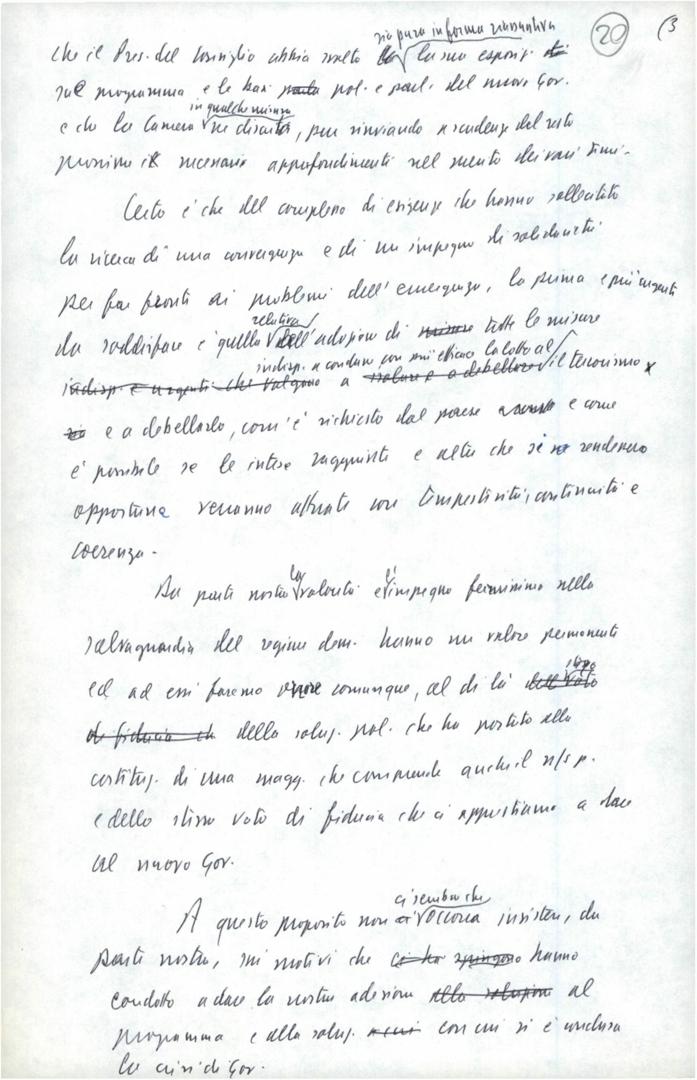 20 (3
sia pure in forma riassuntiva
che il Pres. del Consiglio abbia svolto la sua esposiz.
sul programma e le basi pol. e parl. del nuovo Gov.
in qualche misura
e che la Camera ne discuta, pur rinviando a scadenze del resto
prossime i necessari approfondimenti nel merito dei vari temi.
Certo è che del complesso di esigenze che hanno sollecitato
la ricerca di una convergenza e di un impegno di solidarietà
per far fronte ai problemi dell'emergenza, la prima e più urgente
relativa
da soddisfare è quella dell'adozione di misure tutte le misure
indisp. a condurre con più efficacia la lotta al
indisp. e urgenti che valgono a isolare e a debellare il terrorismo
e a debellarlo, com'è richiesto dal paese e come
è possibile se le intese raggiunte e altre che si renderanno
opportune verranno attuate con tempestività, continuità e
coerenza.
la l'
Da parte nostra volontà e impegno fermissimo nella
salvaguardia del regime dem. hanno un valore permanente
stesso
ed ad essi faremo onore comunque, al di là dell voto
di fiducia ch della soluz. pol. che ha portato alla
costituz. di una magg. che comprende anche il n/s p.
e dello stesso voto di fiducia che ci apprestiamo a dare
al nuovo Gov.
ci sembra che
A questo proposito non occorra insistere, da
parte nostra, sui motivi che ci ha spingono hanno
condotto a dare la nostra adesione alla soluzione al
programma e alla soluz. a cui con cui si è conclusa
la crisi di Gov.